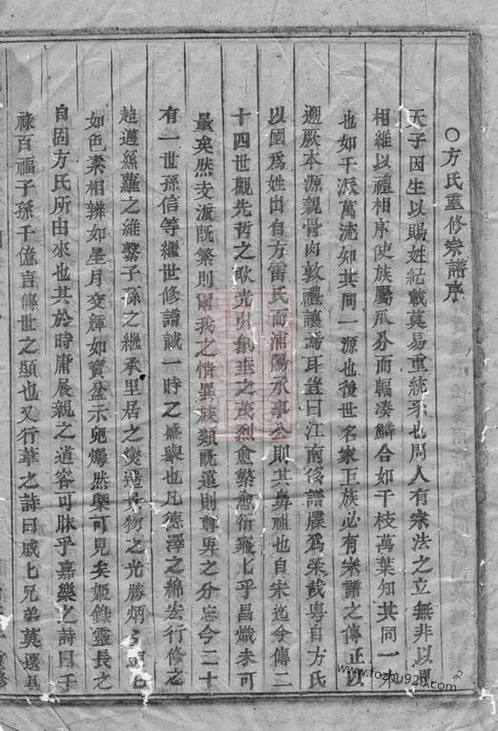 ○方氏重修宗譜序
天子因生以賜姓紀載莫易重統系也周人有宗法之立無非以恩
相維以禮相序使族屬瓜分而輻湊鱗合如千枝萬葉知共同一本
也如千派萬流知共同一源也後世名家王族必有宗譜之傳正以
遡厥本源親骨肉敦禮讓焉耳豈曰江南後譜牒為榮哉粵自方氏
以國為姓出自方雷氏而浦陽承事公即其鼻祖也自宋迄今傳二
十四世觀先哲之耿光創垂之茂烈愈繁愈衍飛乎昌熾未可
量矣然支派既繁則爾我之情異族類既遠則尊卑之分忘今二十
有一世孫信等繼世修譜誠一時之盛舉也凡德澤之綿宏行修之
超邁絲蘿之維繫子孫之繼承里居之人物之光勝炳
如色素相辨如星月交輝如寶盆示燭然與可見矣姬錄靈長之
自固方氏所由來也其於時庸展親之道容可昧乎嘉樂之詩曰干
祿百福子孫千億言傳世之顯也又行葦之詩曰戚七兄弟莫遠具
www.fozhu920.com
2